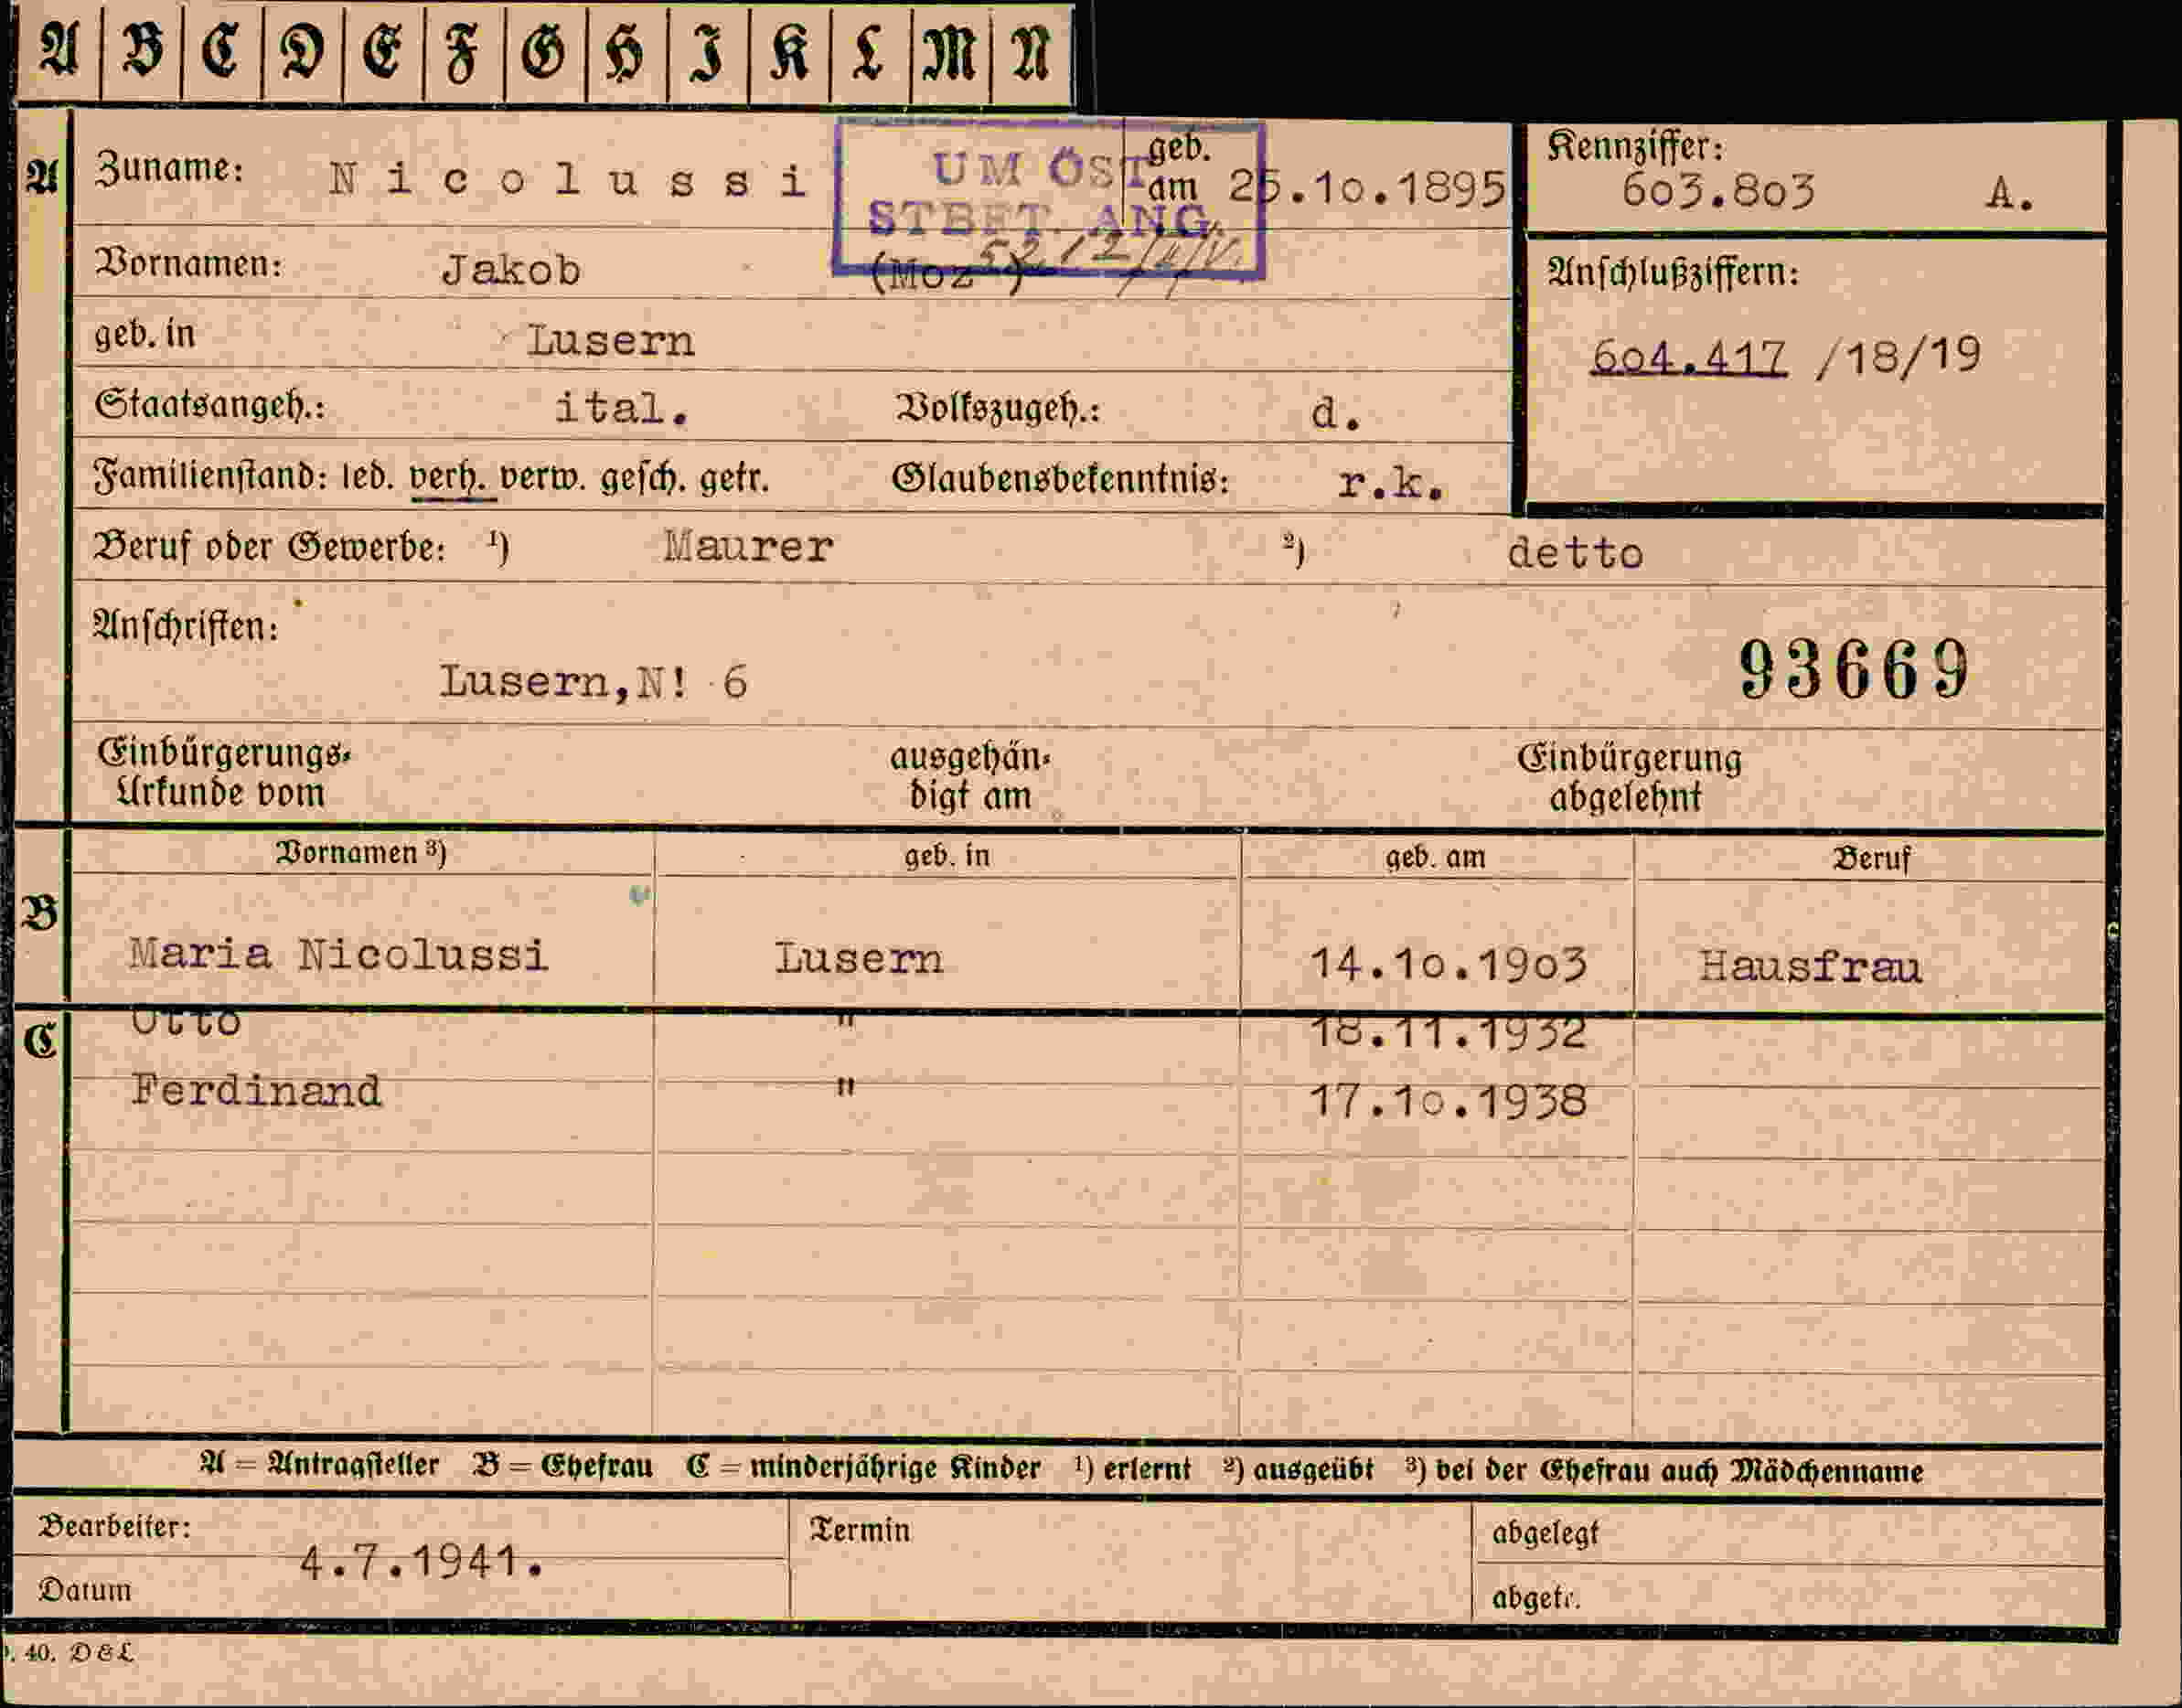 A B C D E F G H I K L M N
A Zuname: Nicolussi geb. am 25.10.1895
UM ÖST
STBFT. ANG.
Kennziffer: 603.803 A.
Vornamen: Jakob (Moz )
geb. in Lusern
Anschlußziffern: 604.417 /18/19
Staatsangeh.: ital. Volkszugeh.: d.
Familienstand: led. verh. verw. gesch. getr. Glaubensbekenntnis: r.k.
Beruf oder Gewerbe: ¹) Maurer ²) detto
Anschriften:
Lusern,N! 6
93669
Einbürgerungs-Urkunde vom ausgehändigt am Einbürgerung abgelehnt
Vornamen ³) geb. in geb. am Beruf
B Maria Nicolussi Lusern 14.10.1903 Hausfrau
C Otto " 18.11.1932
Ferdinand " 17.10.1938
A = Antragsteller B = Ehefrau C = minderjährige Kinder ¹) erlernt ²) ausgeübt ³) bei der Ehefrau auch Mädchenname
Bearbeiter: Termin abgelegt
4.7.1941.
Datum abgetr.
40. D&L